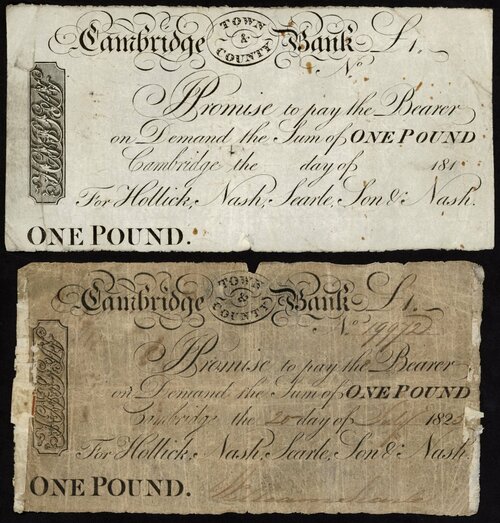 Cambridge TOWN & COUNTY Bank £1.
No
I Promise to pay the Bearer
on Demand the Sum of ONE POUND
Cambridge the day of 181
For Hollick, Nash, Searle, Son & Nash.
ONE POUND.
Cambridge TOWN & COUNTY Bank £1.
No 19972
I Promise to pay the Bearer
on Demand the Sum of ONE POUND
Cambridge the 20 day of July 1825
For Hollick, Nash, Searle, Son & Nash
ONE POUND.